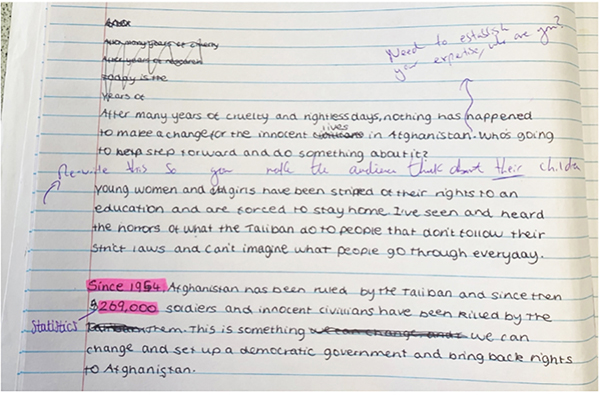 After
After many years of cruelty
After years of research
today is the
years of
Need to establish
your expertise, who are you?
After many years of cruelty and rightless days, nothing has happened
to make a change for the innocent civilians lives in Afghanistan. Who's going
to keep step forward and do something about it?
Re-write this so you make the audience think about their children
young women and girls have been striped of their rights to an
education and are forced to stay home. I've seen and heard
the horrors of what the Taliban do to people that don't follow their
strict laws and can't imagine what people go through everyday.
Since 1954 Afghanistan has been ruled by the Taliban and since then
269,000 soldiers and innocent civilians have been killed by the
Statistics
them. This is something we can change and we can
change and set up a democratic government and bring back rights
to Afghanistan.